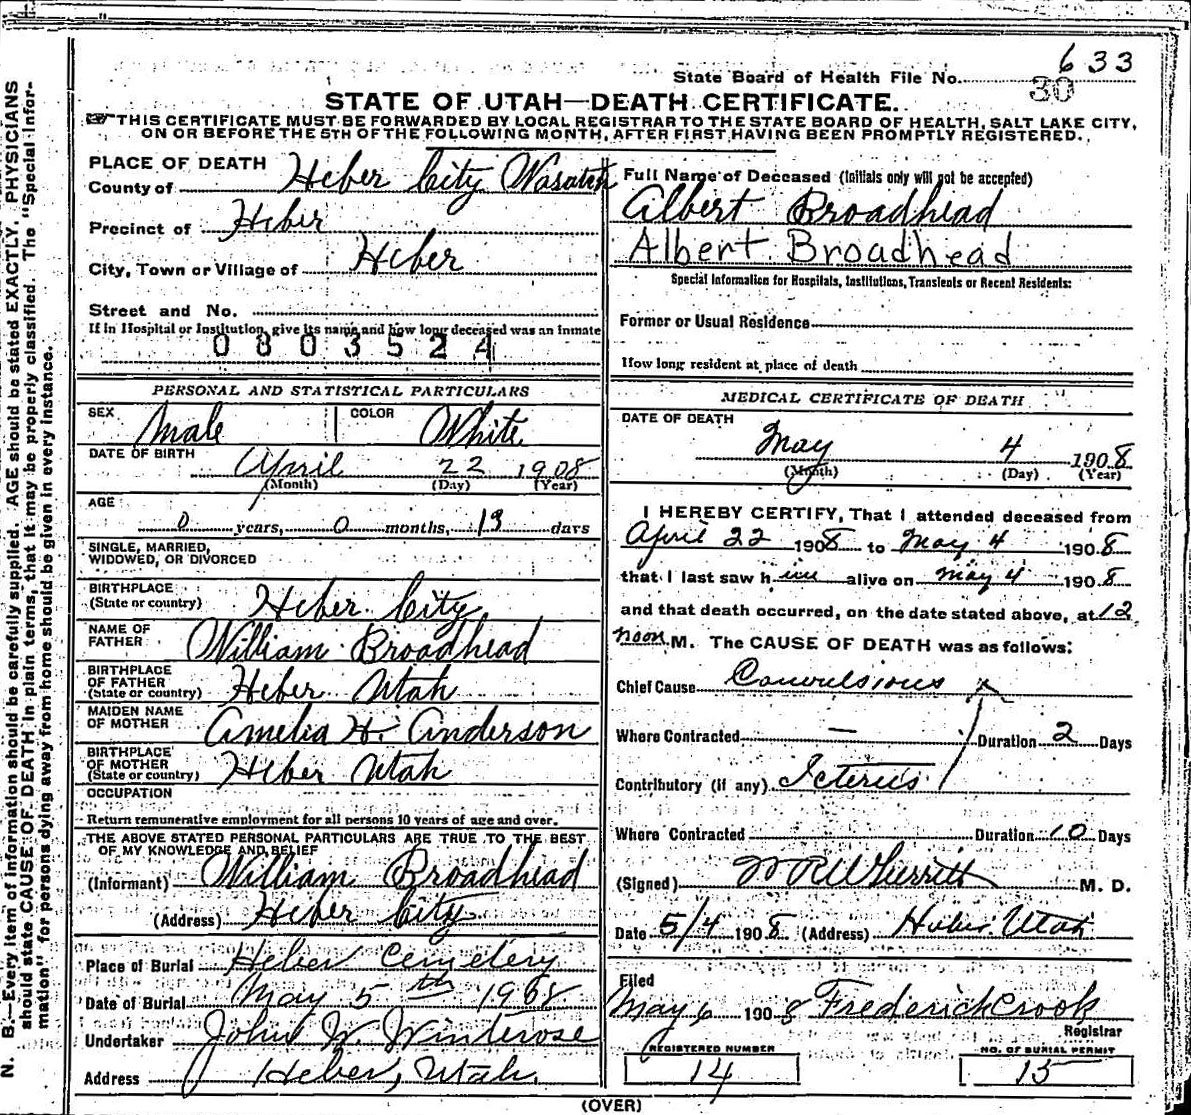 State Board of Health File No. 633
30
STATE OF UTAH—DEATH CERTIFICATE.
THIS CERTIFICATE MUST BE FORWARDED BY LOCAL REGISTRAR TO THE STATE BOARD OF HEALTH, SALT LAKE CITY,
ON OR BEFORE THE 5TH OF THE FOLLOWING MONTH, AFTER FIRST HAVING BEEN PROMPTLY REGISTERED.
N. B.—Every item of information should be carefully supplied. AGE should be stated EXACTLY. PHYSICIANS
should state CAUSE OF DEATH in plain terms, that it may be properly classified. The "Special Infor-
mation" for persons dying away from home should be given in every instance.
PLACE OF DEATH
County of Heber City Wasatch
Precinct of Heber
City, Town or Village of Heber
Street and No.
If in Hospital or Institution, give its name and how long deceased was an inmate
0803524
PERSONAL AND STATISTICAL PARTICULARS
SEX Male COLOR White
DATE OF BIRTH April 22 1908
(Month) (Day) (Year)
AGE
0 years, 0 months, 13 days
SINGLE, MARRIED,
WIDOWED, OR DIVORCED
BIRTHPLACE
(State or country) Heber City
NAME OF
FATHER William Broadhead
BIRTHPLACE
OF FATHER
(State or country) Heber Utah
MAIDEN NAME
OF MOTHER Amelia H. Anderson
BIRTHPLACE
OF MOTHER
(State or country) Heber Utah
OCCUPATION
Return remunerative employment for all persons 10 years of age and over.
THE ABOVE STATED PERSONAL PARTICULARS ARE TRUE TO THE BEST
OF MY KNOWLEDGE AND BELIEF
(Informant) William Broadhead
(Address) Heber City
Place of Burial Heber Cemetery
Date of Burial May 5th 1908
Undertaker John W. Winterose
Address Heber, Utah.
Full Name of Deceased (Initials only will not be accepted)
Albert Broadhead
Albert Broadhead
Special Information for Hospitals, Institutions, Transients or Recent Residents:
Former or Usual Residence
How long resident at place of death
MEDICAL CERTIFICATE OF DEATH
DATE OF DEATH
May 4 1908
(Month) (Day) (Year)
I HEREBY CERTIFY, That I attended deceased from
April 22 1908 to May 4 1908
that I last saw him alive on May 4 1908
and that death occurred, on the date stated above, at 12
noon M. The CAUSE OF DEATH was as follows:
Chief Cause Convulsions
Where Contracted — Duration 2 Days
Contributory (if any) Icterus
Where Contracted Duration 10 Days
(Signed) M. D.
Date 5/4 1908 (Address) Heber Utah
Filed
May 6 1908 Frederick Crook
Registrar
REGISTERED NUMBER
14
NO. OF BURIAL PERMIT
15
(OVER)